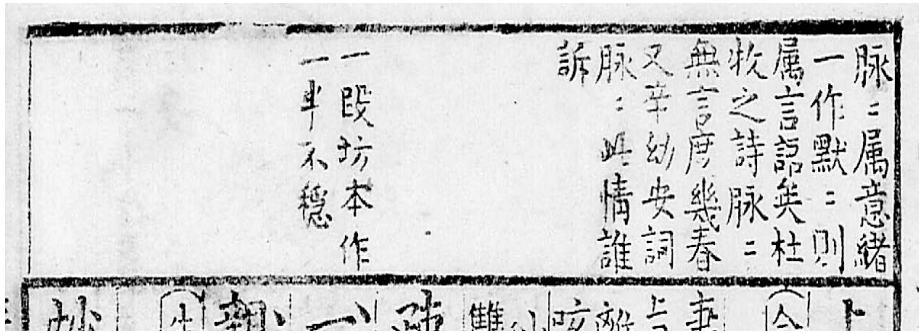 脉〻属意緒
一作默〻則
属言語矣杜
牧之詩脉〻
無言度幾春
又辛幼安詞
脉〻此情誰
訴
一段坊本作
一半不穩